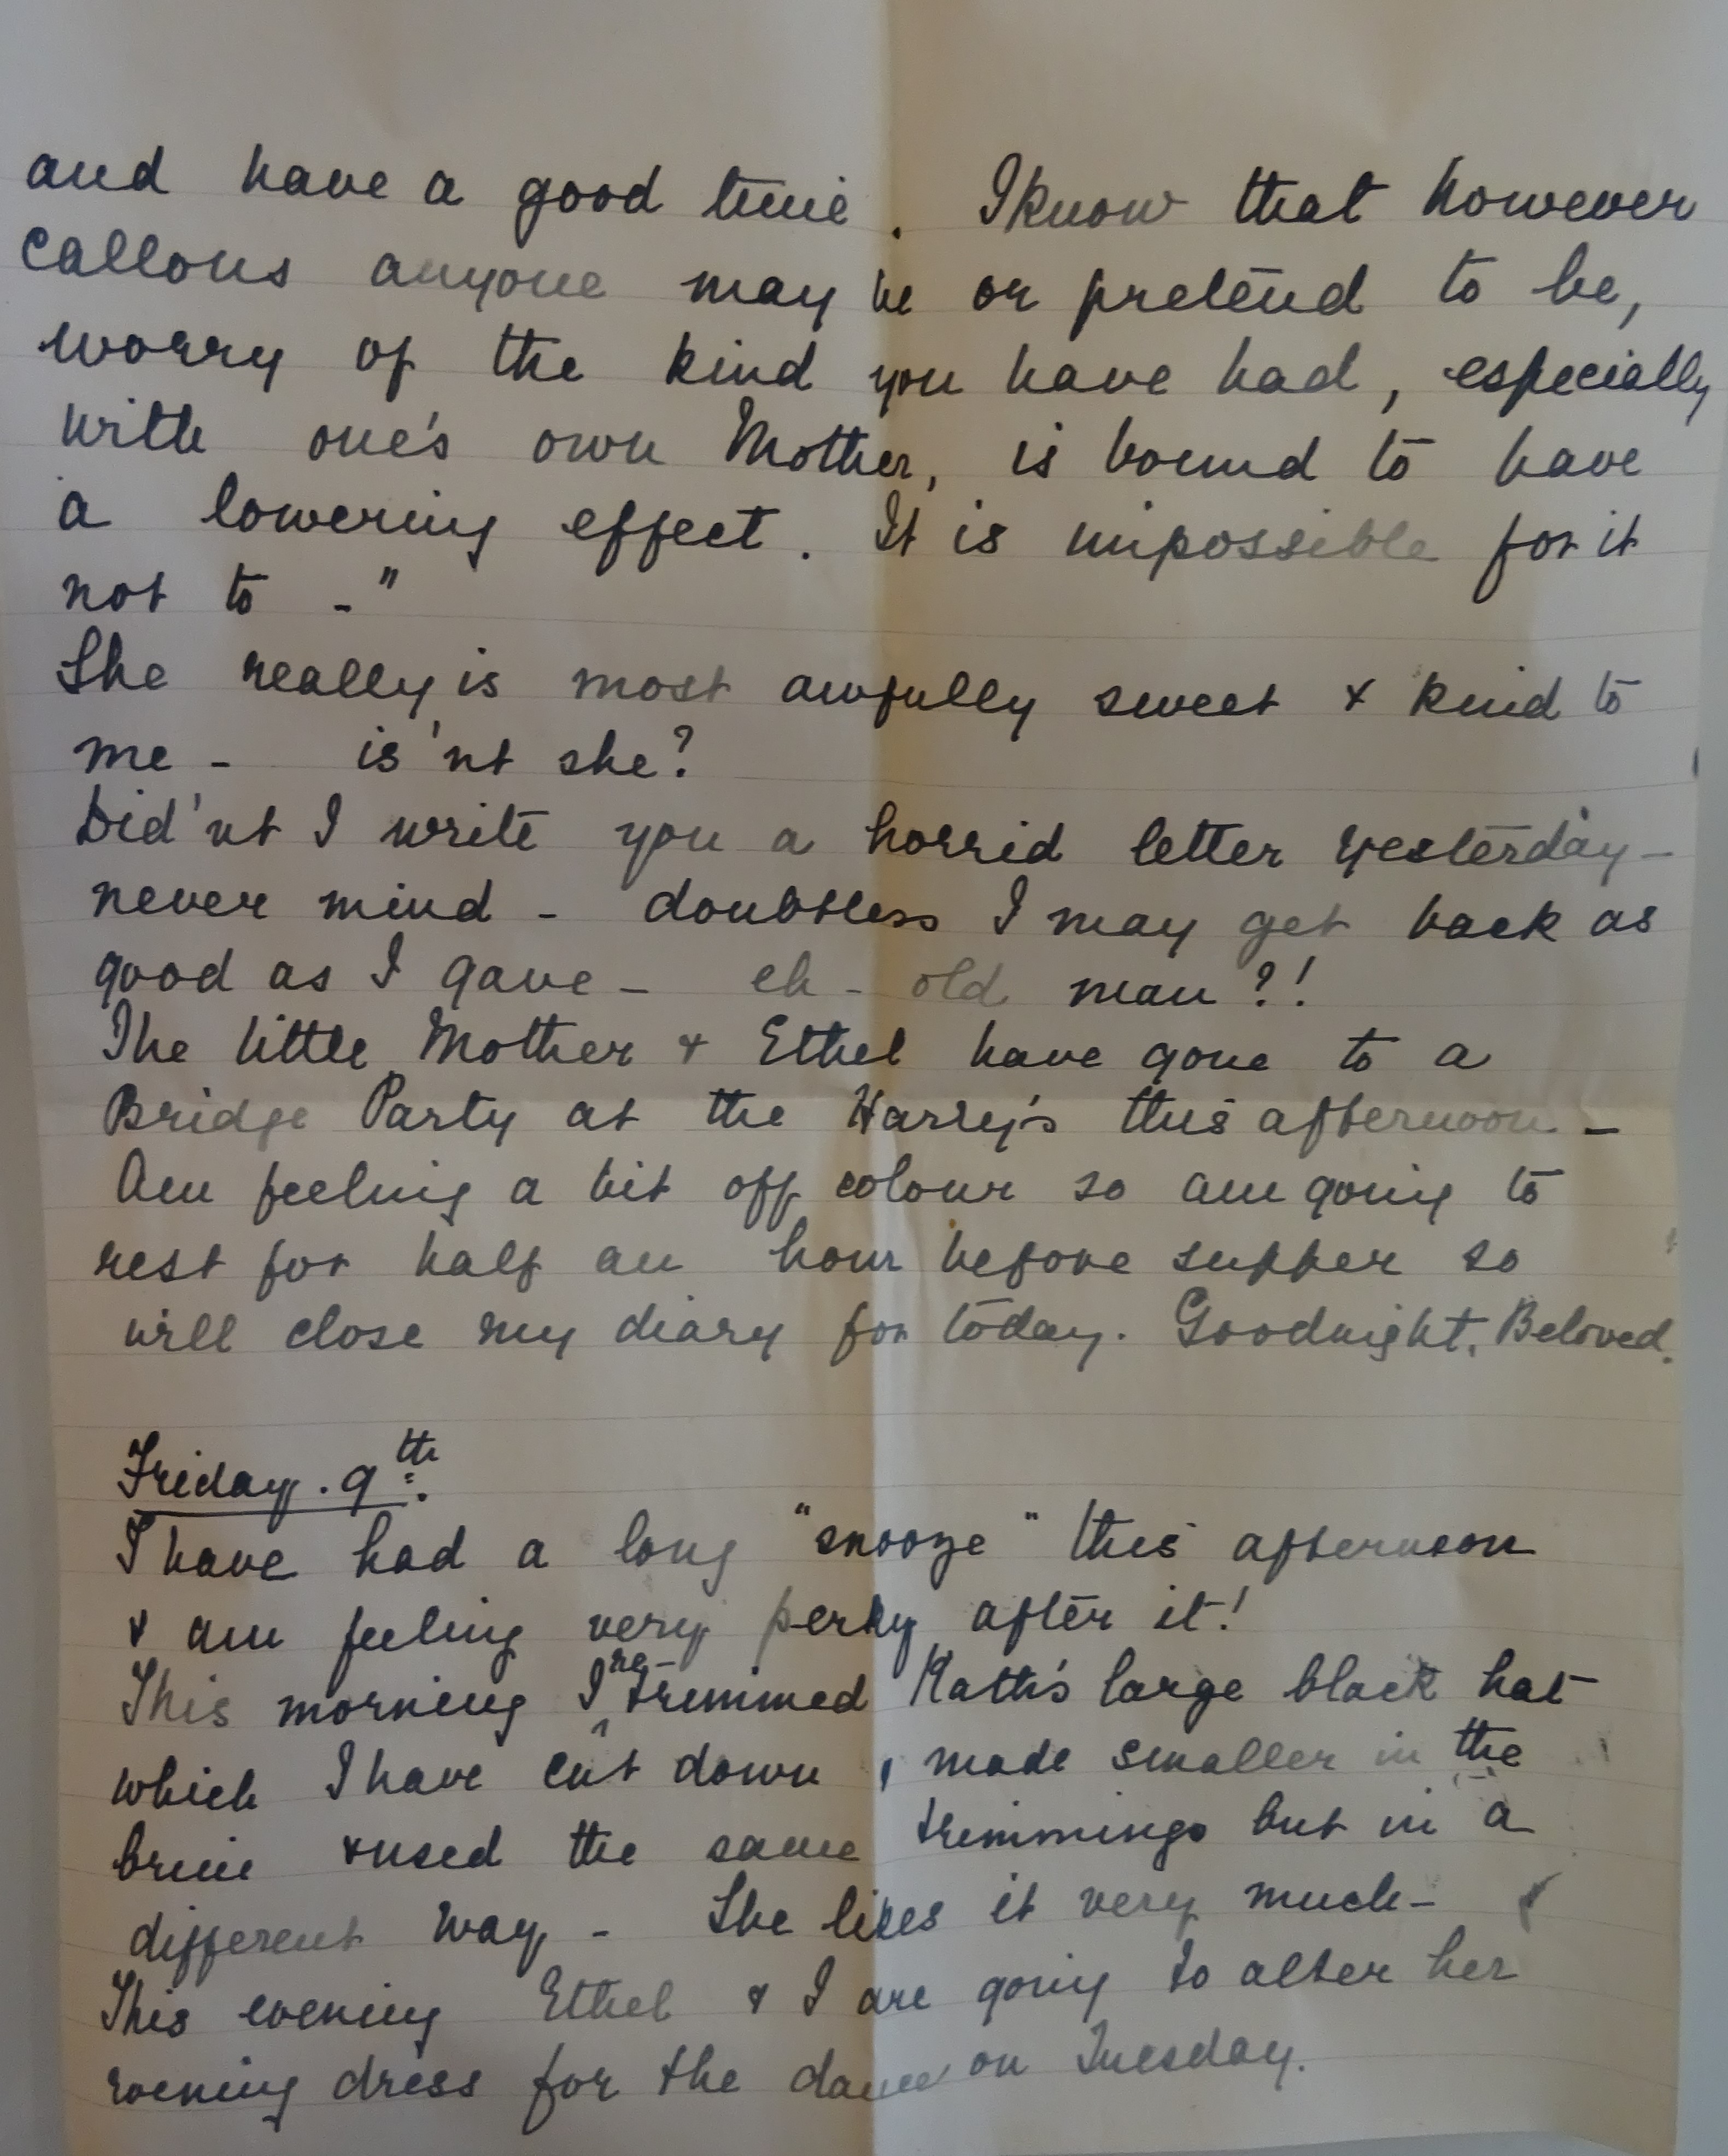 and have a good time. I know that however
callous anyone may be or pretend to be,
worry of the kind you have had, especially
with one's own Mother, is bound to have
a lowering effect. It is impossible for it
not to -"
She really is most awfully sweet & kind to
me - is'nt she?
Did'nt I write you a horrid letter yesterday -
never mind - doubtless I may get back as
good as I gave - eh - old man?!
The little Mother & Ethel have gone to a
Bridge Party at the Harry's this afternoon -
Am feeling a bit off colour so am going to
rest for half an hour before supper so
will close my diary for today. Goodnight, Beloved.
Friday. 9th.
I have had a long "snooze" this afternoon
& am feeling very perky after it!
This morning I re-trimmed Kath's large black hat
which I have cut down, made smaller in the
brim & used the same trimmings but in a
different way - She likes it very much -
This evening Ethel & I are going to alter her
evening dress for the dance on Tuesday.